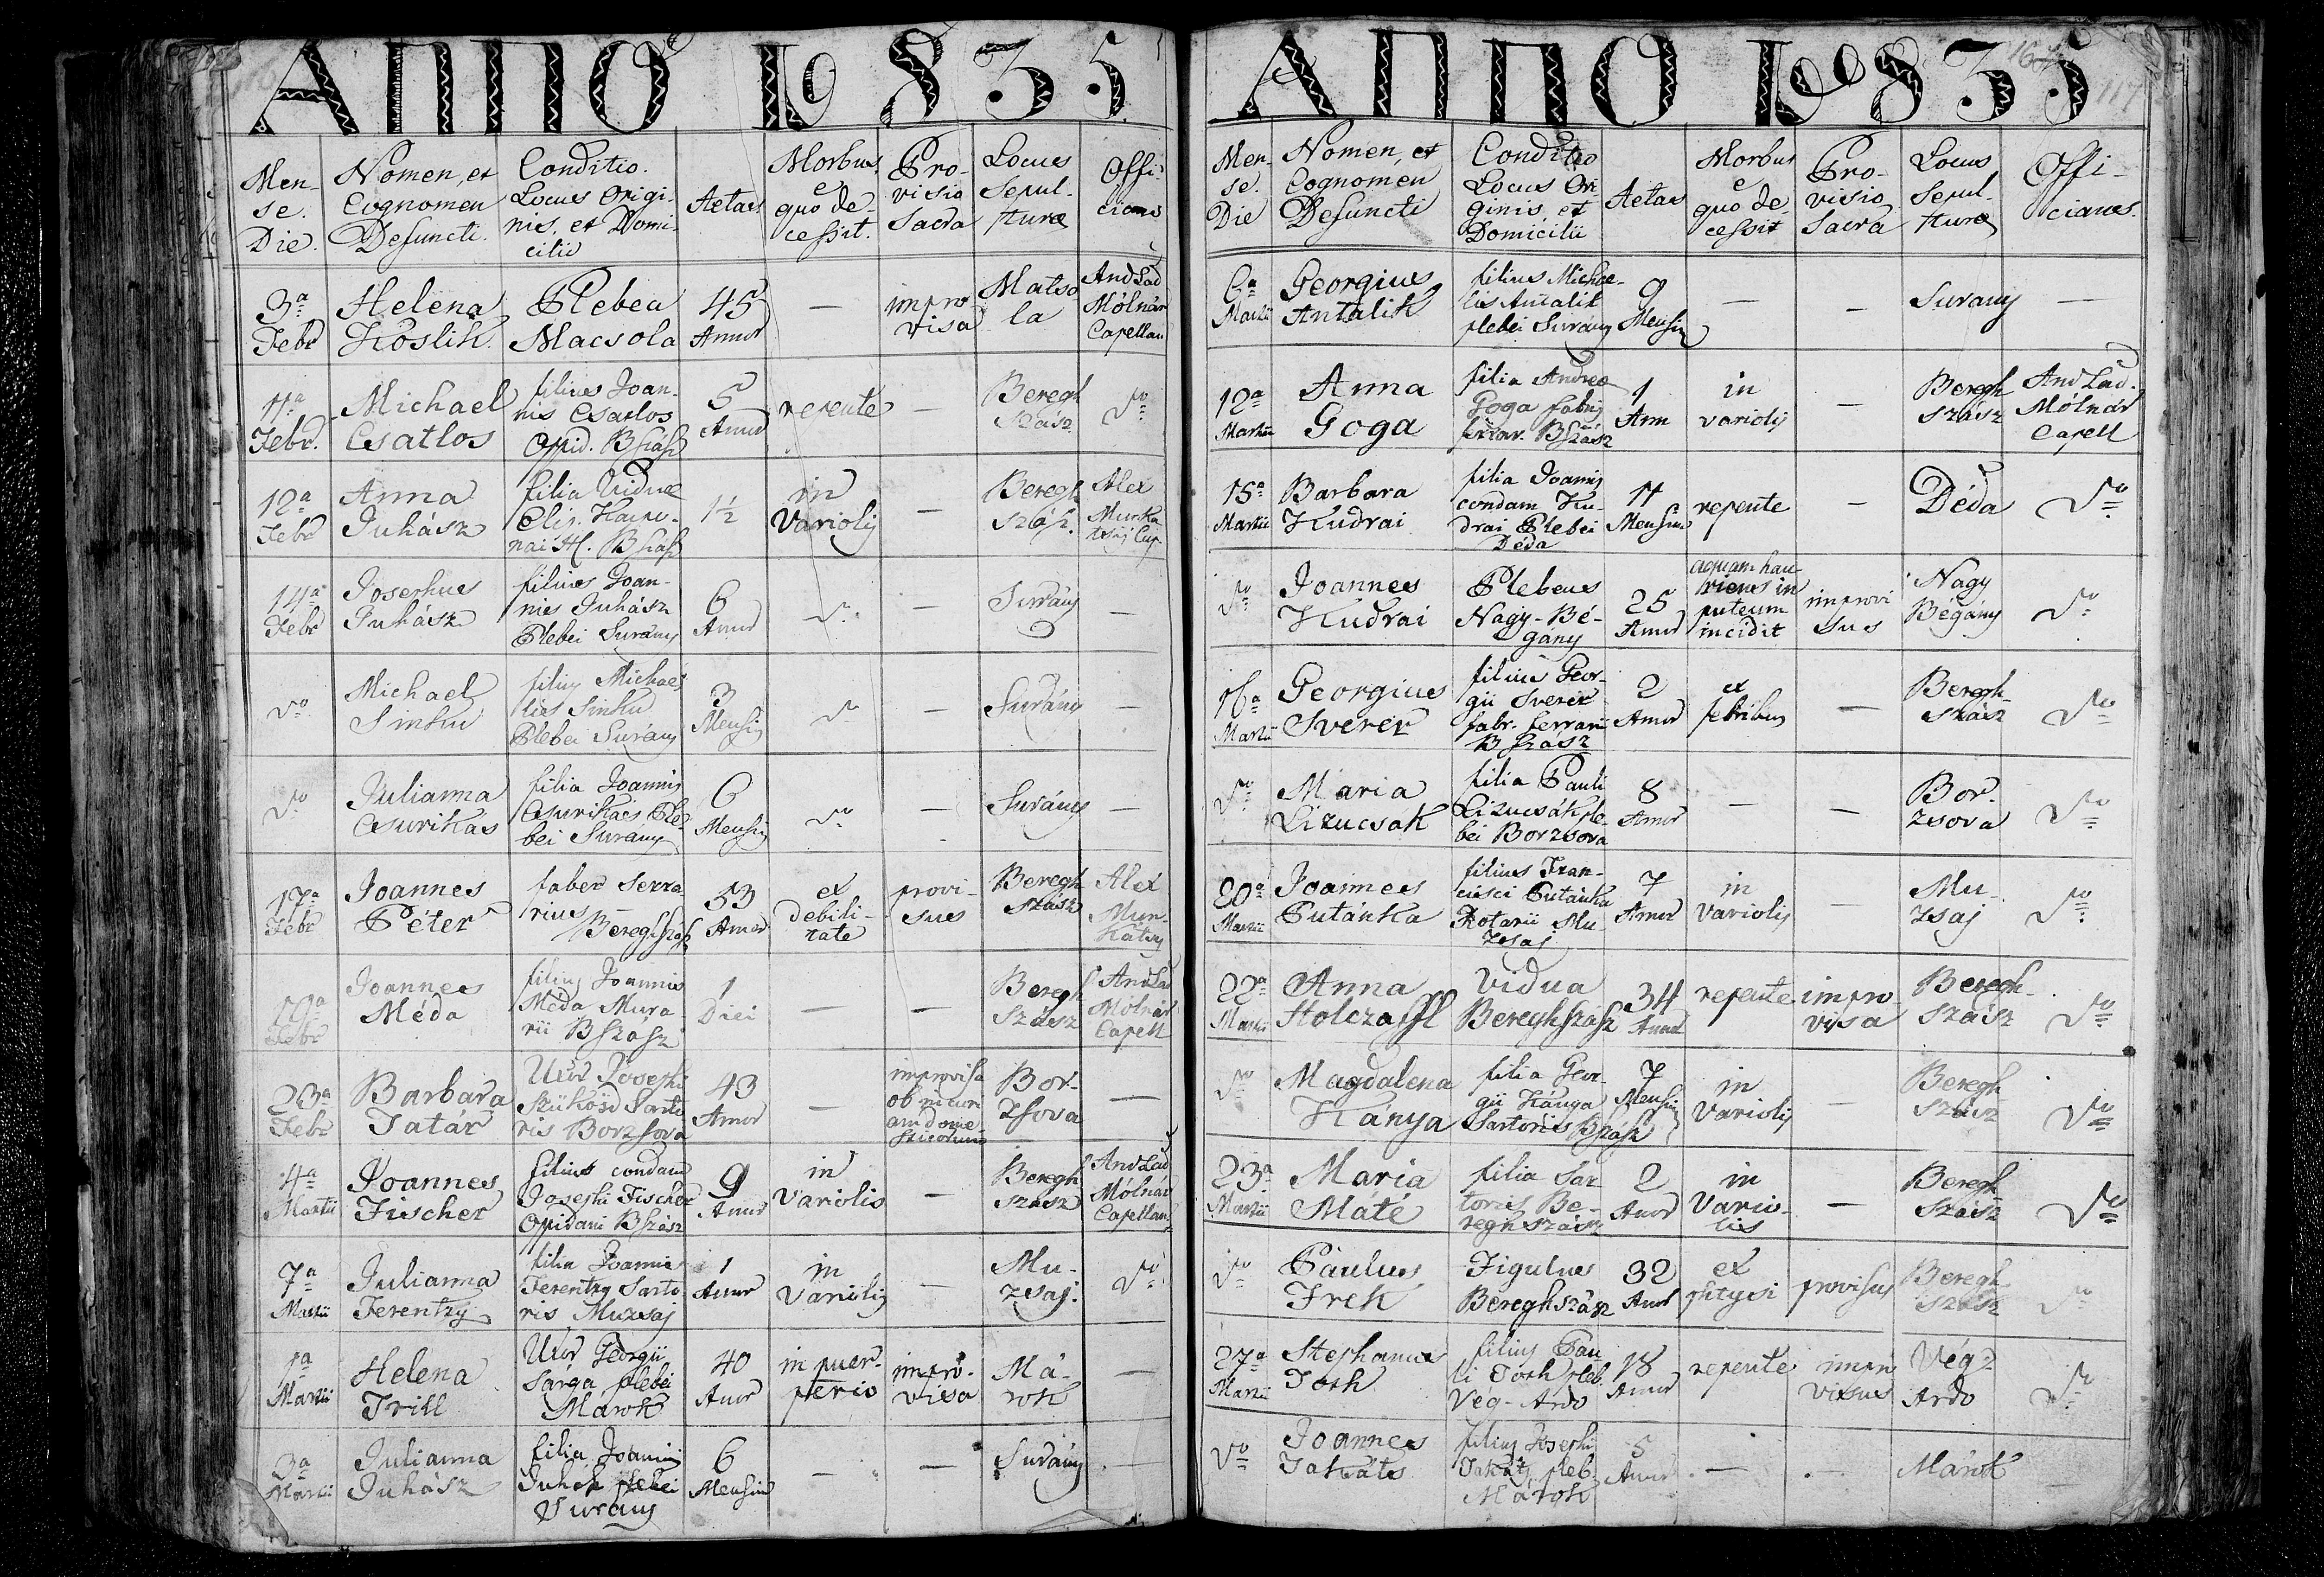 ANNO 1835.
Mense. Die.
Nomen, et Cognomen Defuncti.
Conditio. Locus Originis, et Domicilii
Aetas
Morbus e quo decessit.
Provisio Sacra
Locus Sepulturæ
Officians
3a Febr
Helena Koslik
Plebea Macsola
45 Annor
—
improvisa
Matsola
And Lad Mólnár Capellan
11a Febr.
Michael Csatlos
filius Joannis Csatlos Opid. BSzász
5 Annor
repente
—
Bereghszász
do
12a Febr
Anna Juhász
filia Viduæ Elis. BSzász
1½
in Variolis
—
Bereghszász
Alex Munkatsij Cap.
14a Febr
Josephus Juhász
filius Joannis Juhász Plebei Surány
6 Annor
do
—
Surány
—
do
Michael Sinku
filius Michaelis Sinku Plebei Surány
3 Mensis
do
—
Surány
—
do
Julianna Csurikas
filia Joannis Csurikács Plebei Surany
6 Mensis
do
—
Surány
—
17a Febr
Joannes Péter
faber Serrarius Bereghszász
53 Annor
ex debilitate
provisus
Bereghszász
Alex Munkátsy
Febr
Joannes Méda
filius Joannis Méda Murarii BSzász
1 Diei
—
—
Bereghszász
And Lad Mólnár Capell
23a Febr
Barbara Tatár
Uxor Josephi Szüköss Sartoris Borzsova
43 Annor
—
improvisa ob incuriam domesticorum
Borzsova
—
4a Martii
Joannes Fischer
filius condam Josephi Fischer Opidani BSzász
9 Annor
in Variolis
—
Bereghszász
And Lad Mólnár Capellan
7a Martii
Julianna Ferentzy
filia Joannis Ferentzy Sartoris Muzsaj
1 Annor
in Variolis
—
Muzsaj.
do
1a Martii
Helena Trill
Uxor Georgii Sárga plebei Marok
40 Annor
in puerperio
improvisa
Márok
—
3a Martii
Julianna Juhász
filia Joannis Juhász plebei Surány
6 Mensium
—
—
Surány
—
ANNO 1835
117
Mense. Die
Nomen, et Cognomen Defuncti
Conditio Locus Originis, et Domicilii
Aetas
Morbus e quo decessit
Provisio Sacra
Locus Sepulturæ
Officians.
6a Martii
Georgius Antalik
filius Michaelis Antalik plebei Surány
9 Mensis
—
—
Surany
—
12a Martii
Anna Goga
filia Andreæ Goga fabri BSzász
1 Ann
in variolis
—
Bereghszász
And Lad. Mólnár Capell
15a Martii
Barbara Kudrai
filia Joannis condam Kudrai Plebei Déda
11 Mensium
repente
—
Déda
do
do
Joannes Kudrai
Plebeus Nagy-Bégány
25 Annor
aquam hauriens in puteum incidit
improvisus
Nagy Bégány
do
16a Martii
Georgius Sverer
filius Georgii Sverer fabr. ferrarii BSzász
2 Annor
ex febribus
—
Bereghszász
do
do
Maria Lizucsak
filia Pauli Lizucsák plebei Borzsova
8 Annor
—
—
Borzsova
do
20a Martii
Joannes Putánka
filius Francisci Putánka Rotarii Muzsaj
7 Annor
in Variolis
—
Muzsaj
do
22a Martii
Anna Holczaffl
Vidua Bereghszász
34 Annor
repente
improvisa
Bereghszász
do
do
Magdalena Kánya
filia Georgii Kánya Sartoris BSzász
7 Mensis
in Variolis
—
Bereghszász
do
23a Martii
Maria Máté
filia Sartoris Bereghszász
2 Annor
in Variolis
—
Bereghszász
do
do
Paulus Frek
Figulus Bereghszász
32 Annor
ex phtysi
provisus
Bereghszász
do
27a Martii
Stephanus Toth
filius Pauli Toth pleb. Vég-Ardo
18 Annor
repente
improvisus
Vég Ardo
do
do
Joannes Takáts
filius Josephi Takáts pleb. Márok
5 Annor
—
—
Márok